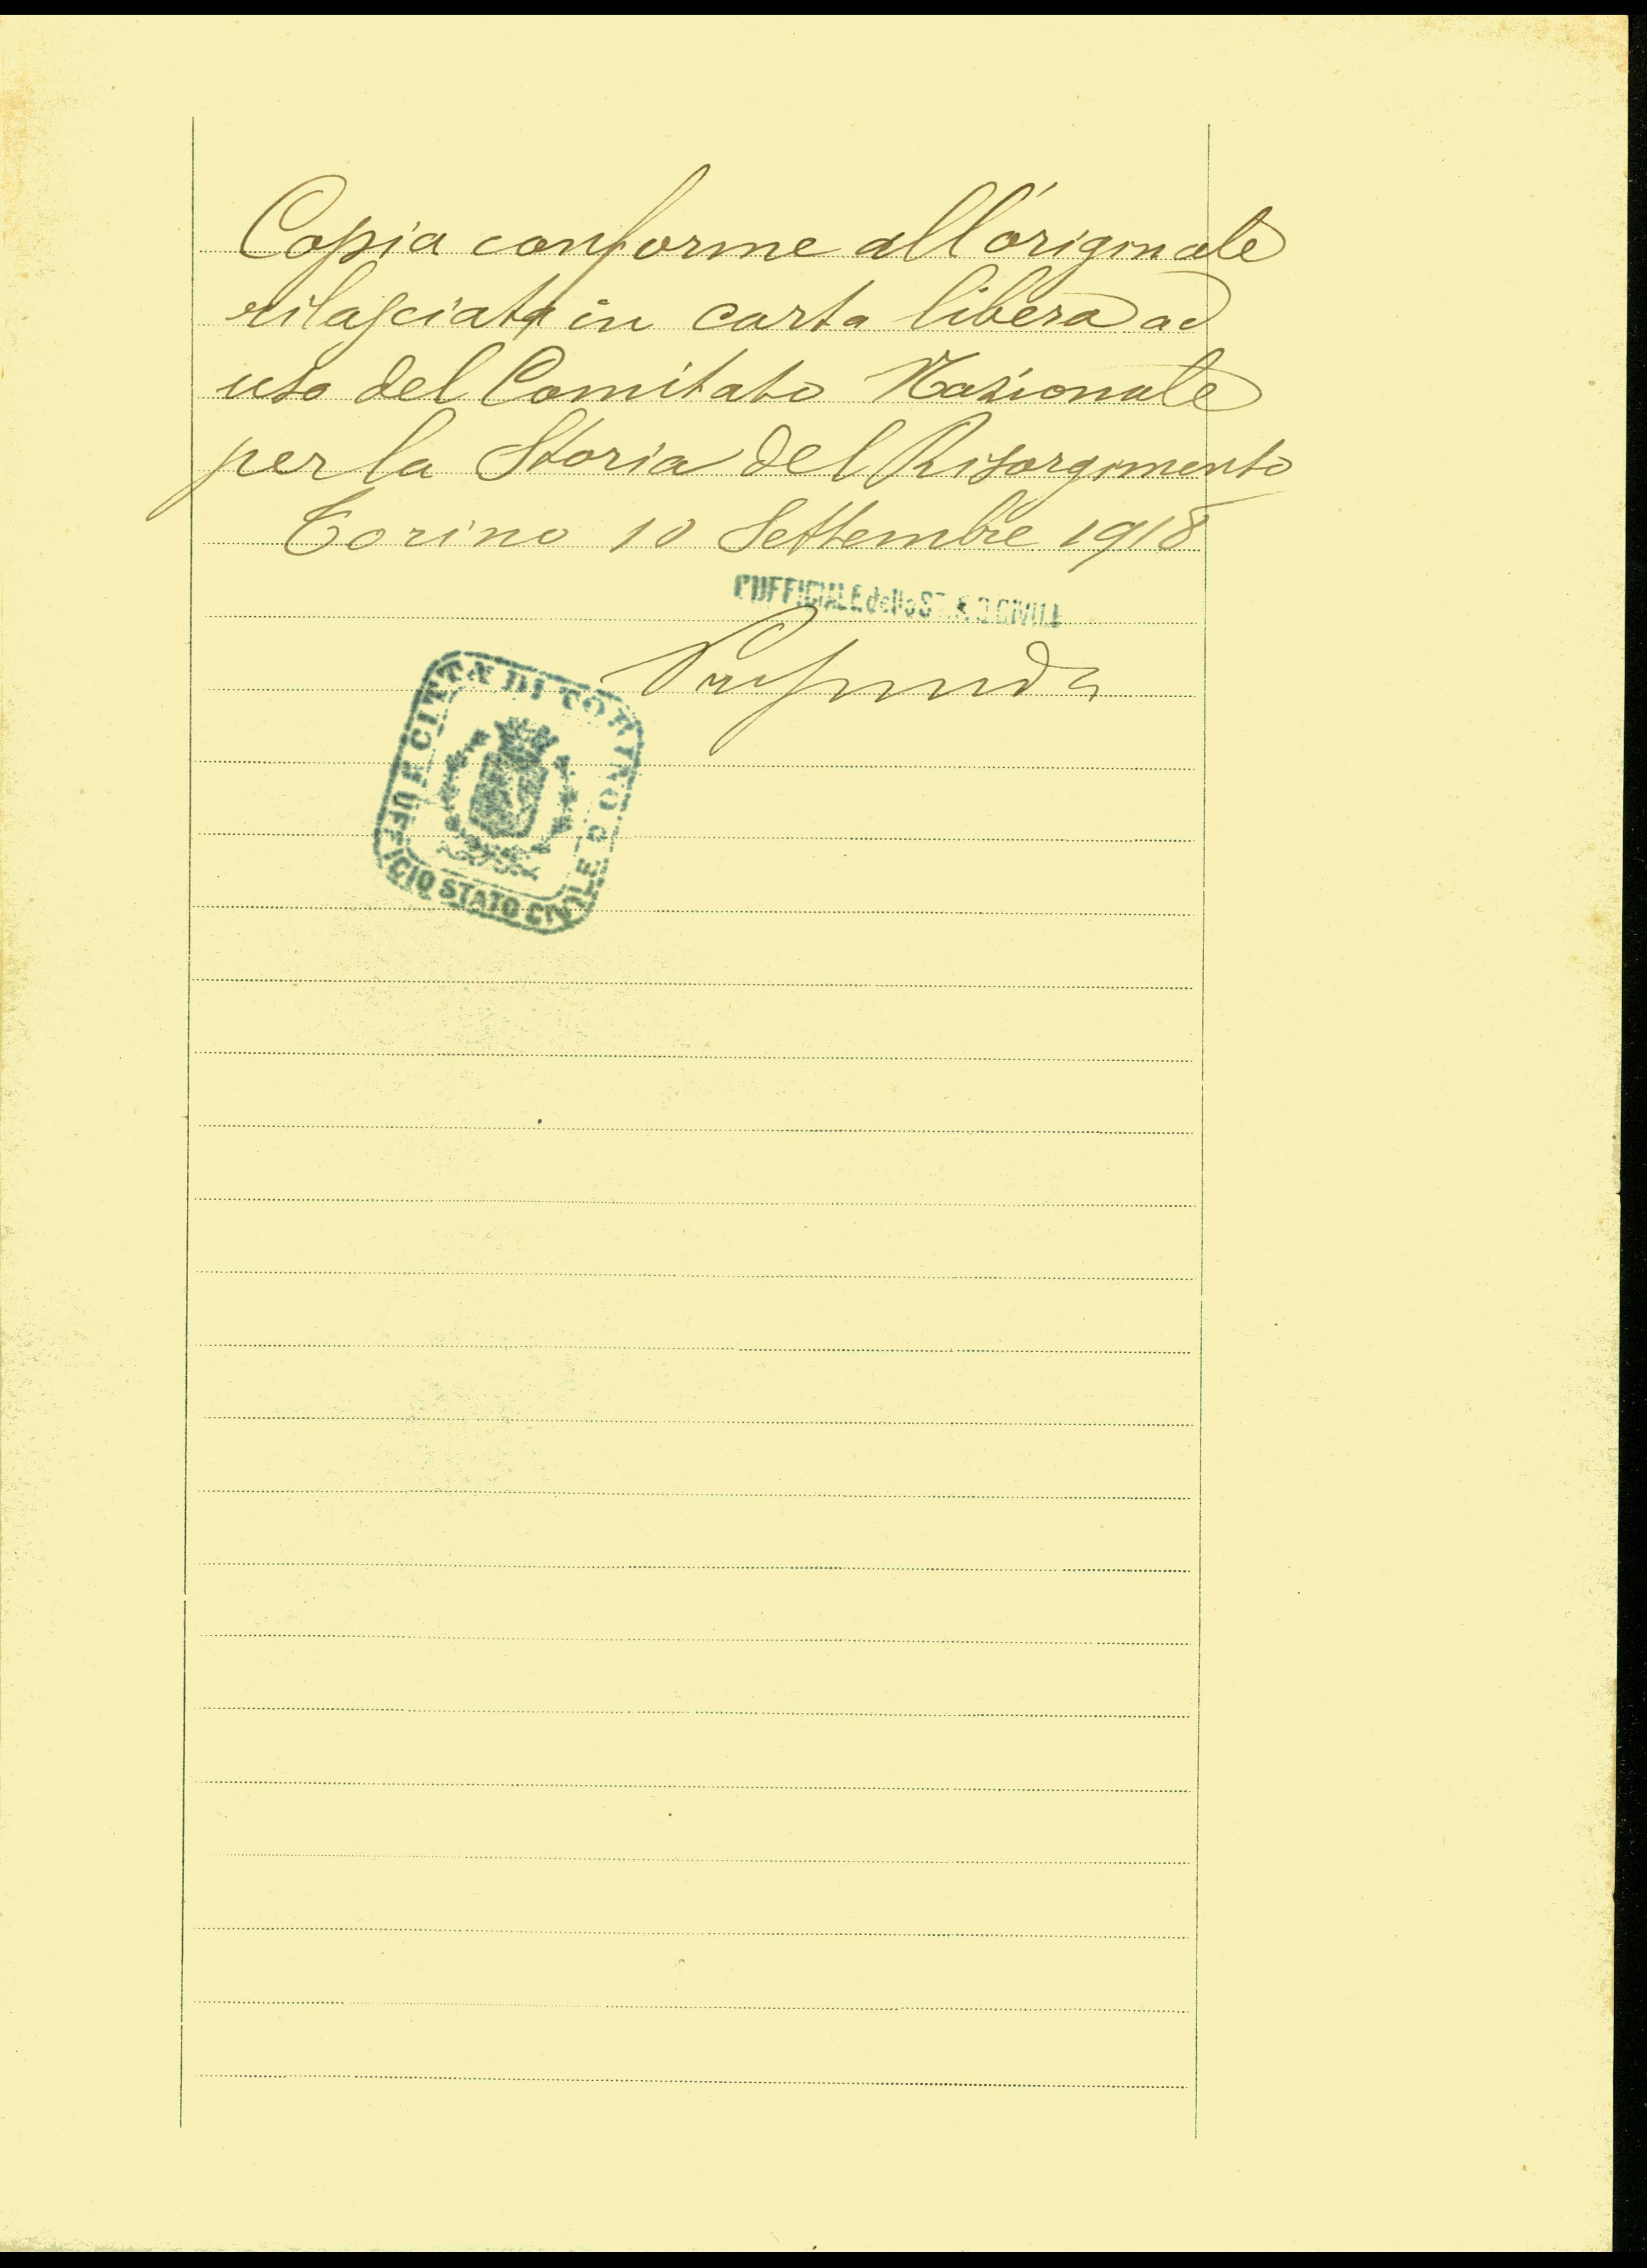 Copia conforme all'originale
rilasciata in carta libera ad
uso del Comitato Nazionale
per la Storia del Risorgimento
Torino 10 Settembre 1918
L'UFFICIALE dello STATO CIVILE
CITTÀ DI TORINO
UFFICIO STATO CIVILE